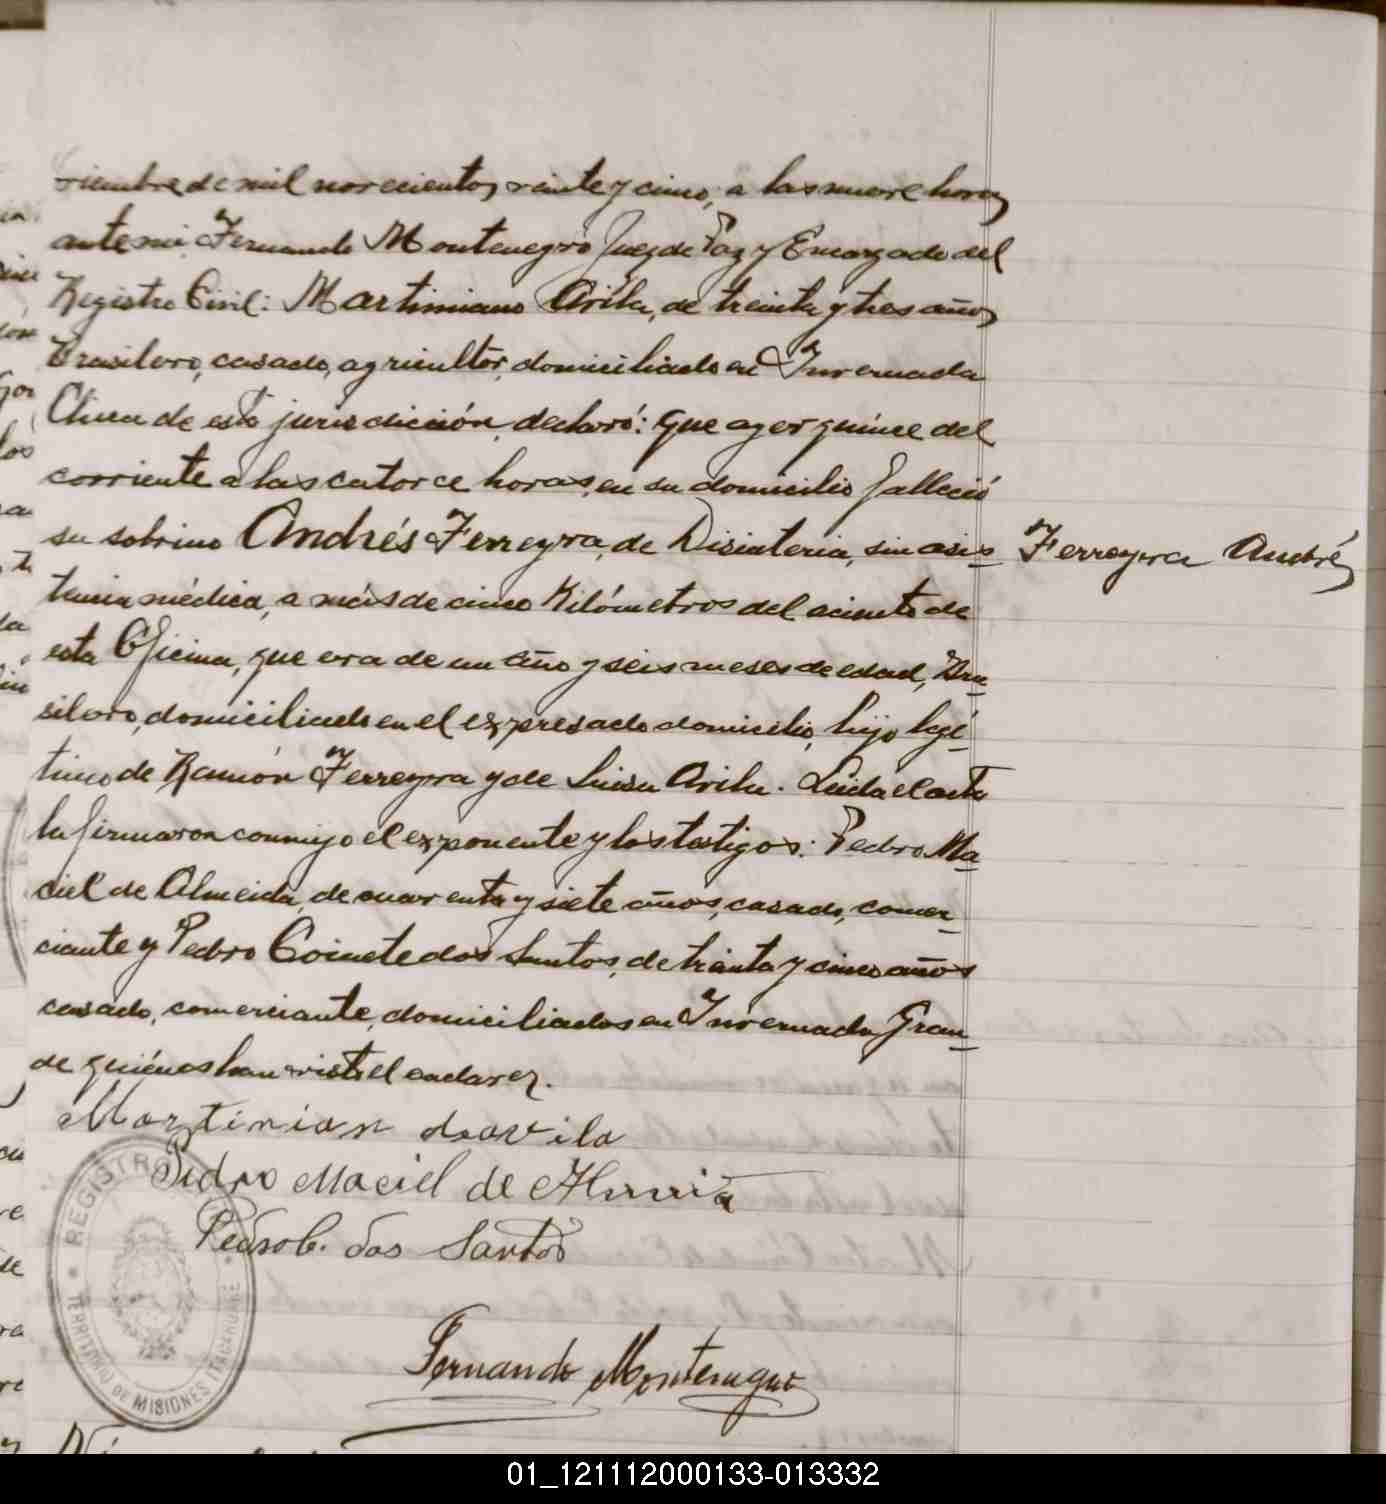 ciembre de mil novecientos veinte y cinco, a las nueve horas
ante mi Fernando Montenegro Juez de Paz y Encargado del
Registro Civil: Martimiano Avila, de treinta y tres años
Brasilero, casado, agricultor, domiciliado en Invernada
Chica de esta jurisdicción, declaró: que ayer quince del
corriente a las catorce horas, en su domicilio falleció
su sobrino Andrés Ferreyra, de Disinteria, sin asis-
Ferreyra Andrés
tencia médica, a más de cinco Kilómetros del aciento de
esta Oficina, que era de un año y seis meses de edad, Bra-
silero, domiciliado en el expresado domicilio, hijo legí-
timo de Ramón Ferreyra y de Luisa Avila. Leída el acta
la firmaron conmigo el exponente y los testigos: Pedro Ma-
ciel de Almeida, de cuarenta y siete años, casado, comer-
ciante y Pedro dos Santos, de treinta y cinco años
casado, comerciante, domiciliados en Invernada Gran-
de quiénes han visto el cadaver.
Martinian davila
Pedro Maciel de
Pedro C. dos Santos
Fernando Montenegro
REGISTRO CIVIL
TERRITORIO DE MISIONES ITACARUARE
01_121112000133-013332